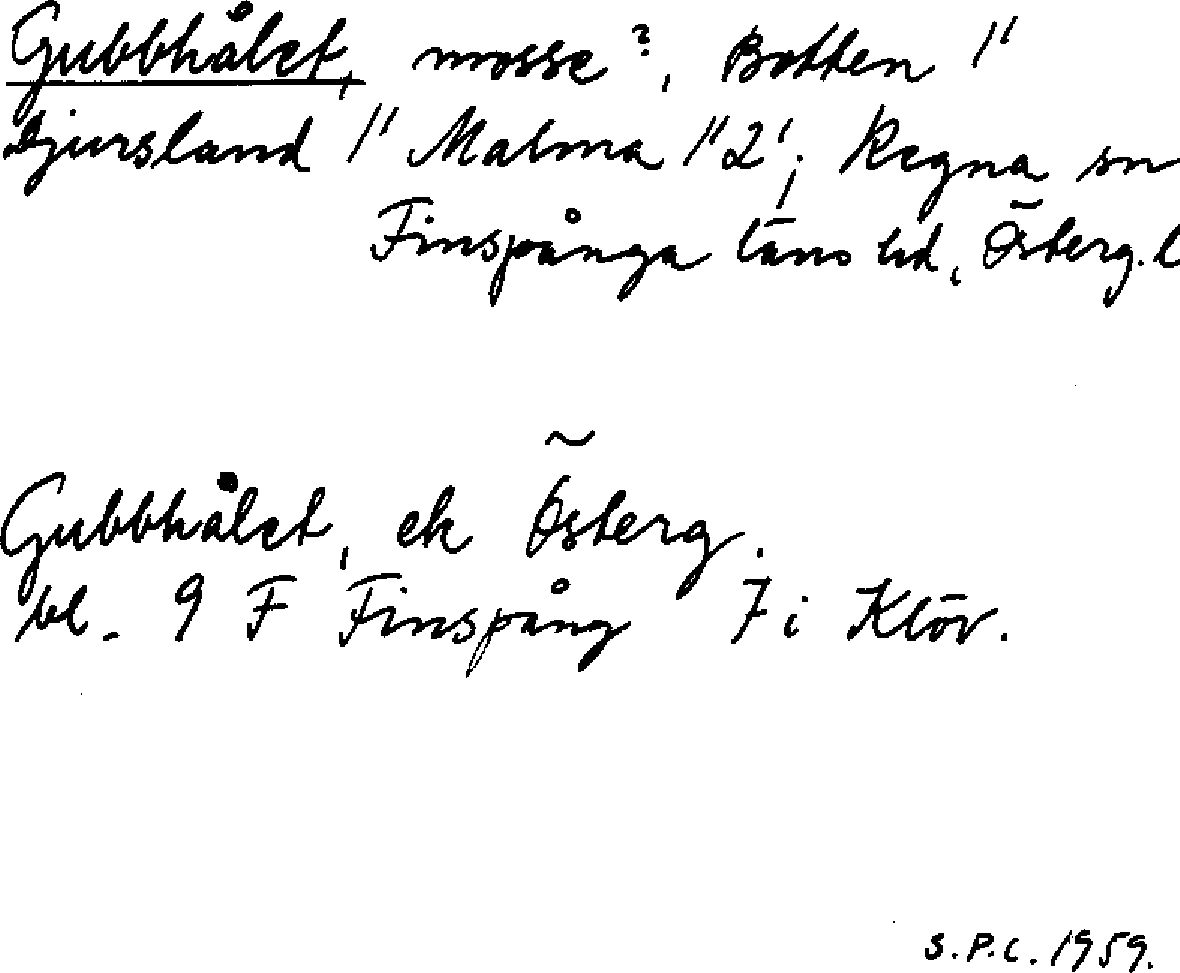 Gubbhålet, mosse?, Botten 1"
Djursland 1" Malma 1"2'; Regna sn
Finspånga läns hd, Österg. l
Gubbhålet, ek Österg.
bl. 9 F Finspång 7 i Klöv.
S.P.C. 1959.